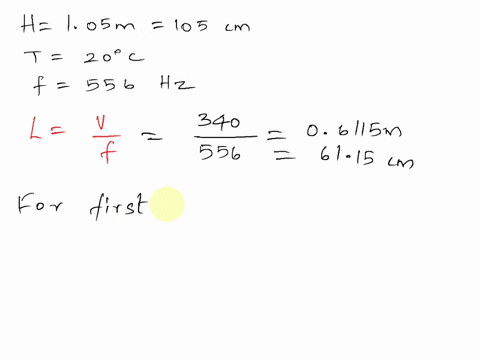 H = 1.05m = 105 cm
T = 20°C
f = 556 Hz
L = V/f = 340/556 = 0.6115m
= 61.15 cm
For first